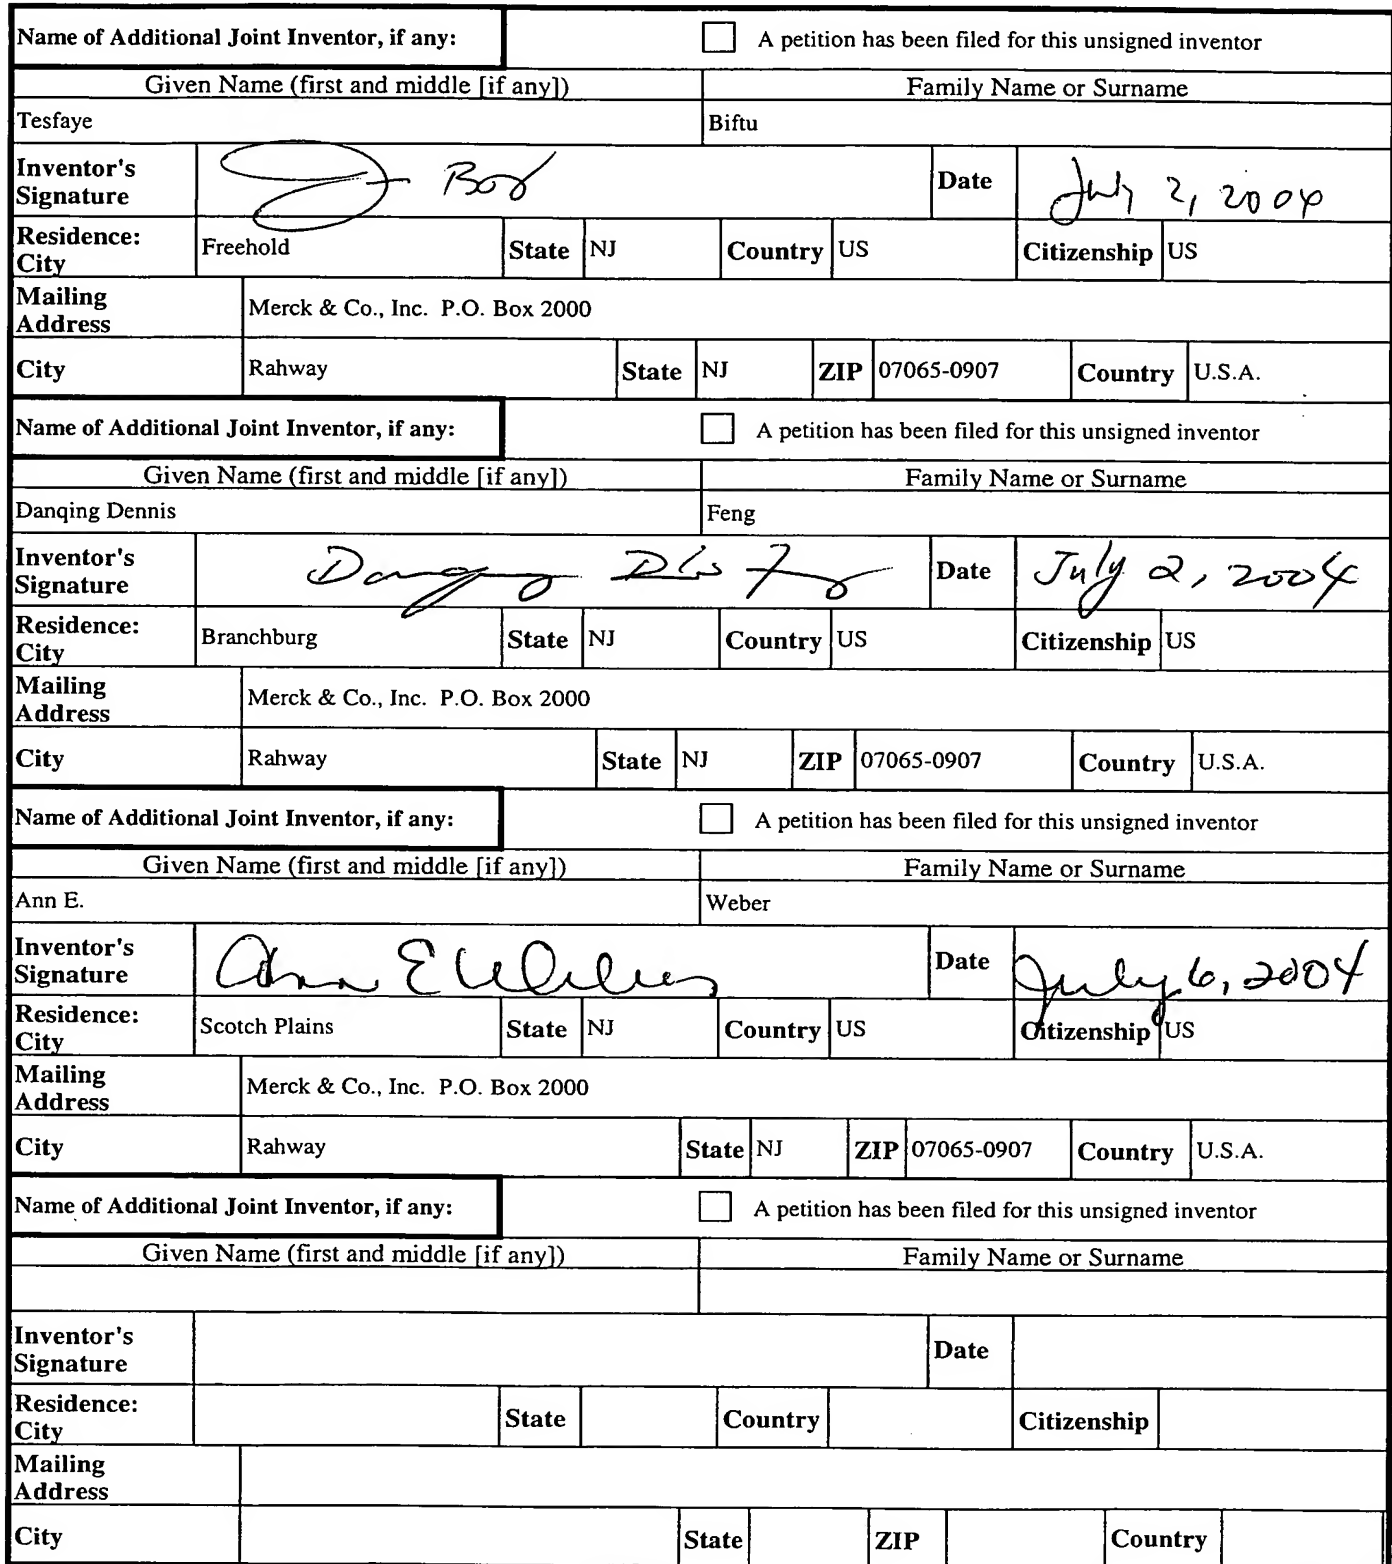 Name of Additional Joint Inventor, if any: A petition has been filed for this unsigned inventor
Given Name (first and middle [if any]) Family Name or Surname
Tesfaye Biftu
Inventor's Signature Date July 2, 2004
Residence: City Freehold State NJ Country US Citizenship US
Mailing Address Merck & Co., Inc. P.O. Box 2000
City Rahway State NJ ZIP 07065-0907 Country U.S.A.
Name of Additional Joint Inventor, if any: A petition has been filed for this unsigned inventor
Given Name (first and middle [if any]) Family Name or Surname
Danqing Dennis Feng
Inventor's Signature Date July 2, 2004
Residence: City Branchburg State NJ Country US Citizenship US
Mailing Address Merck & Co., Inc. P.O. Box 2000
City Rahway State NJ ZIP 07065-0907 Country U.S.A.
Name of Additional Joint Inventor, if any: A petition has been filed for this unsigned inventor
Given Name (first and middle [if any]) Family Name or Surname
Ann E. Weber
Inventor's Signature Ann E Weber Date July 6, 2004
Residence: City Scotch Plains State NJ Country US Citizenship US
Mailing Address Merck & Co., Inc. P.O. Box 2000
City Rahway State NJ ZIP 07065-0907 Country U.S.A.
Name of Additional Joint Inventor, if any: A petition has been filed for this unsigned inventor
Given Name (first and middle [if any]) Family Name or Surname
Inventor's Signature Date
Residence: City State Country Citizenship
Mailing Address
City State ZIP Country